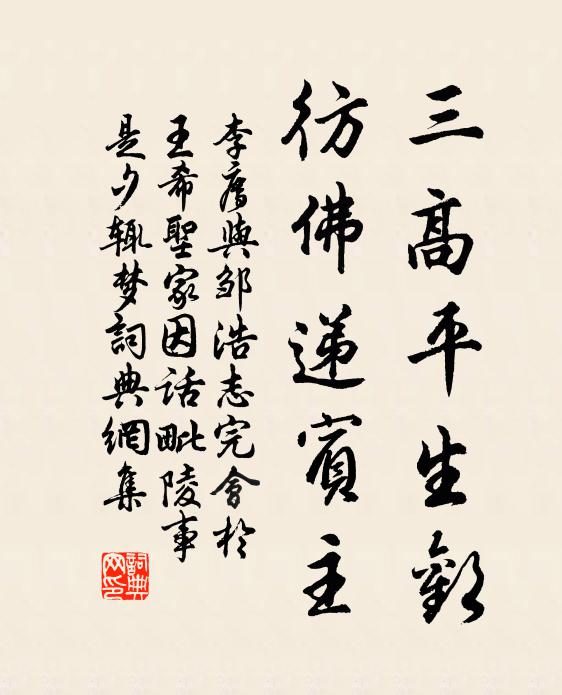 三高平生歡
彷佛遞賓主
李廌與邹浩志完會於
王希聖家因話毗陵事
是夕輙梦詞典網集
詞典网印